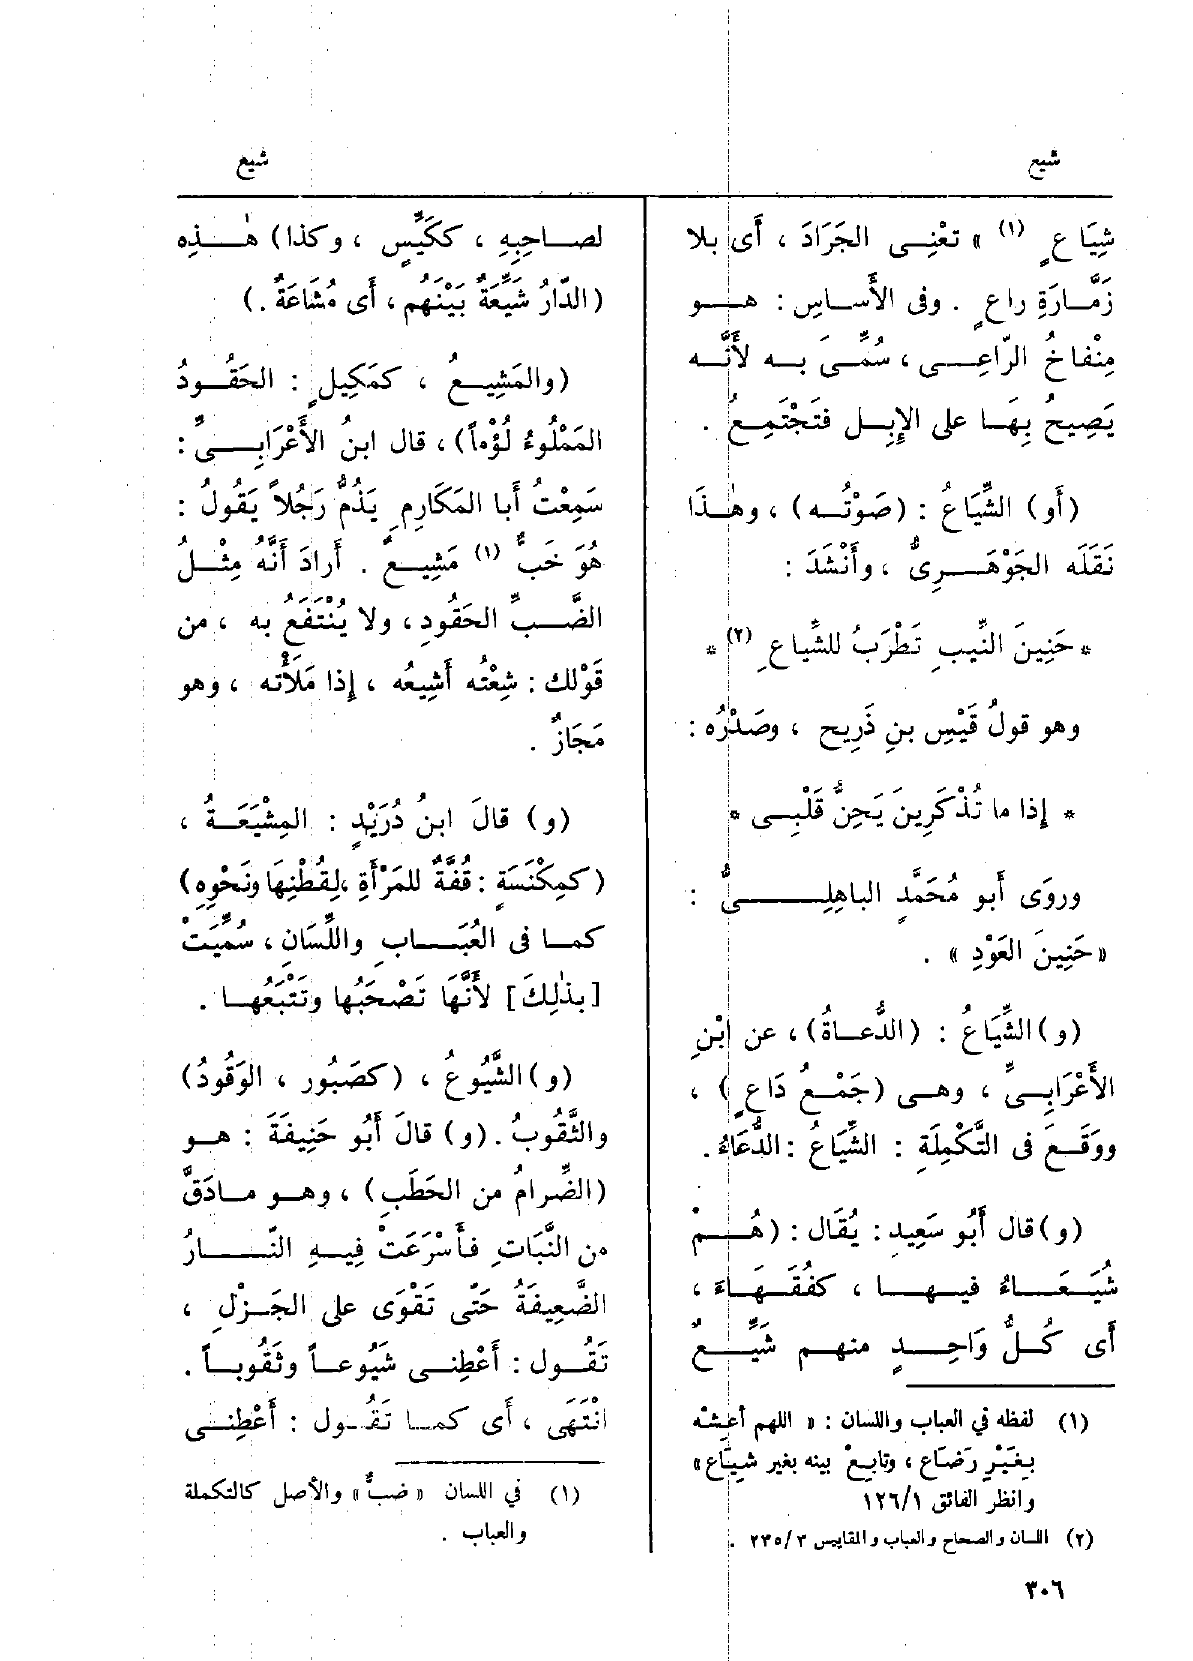 شيع
شيع
شِيَاعٍ (١) » تعْنِى الجَرَادَ ، أَى بلا
زَمَّارَةِ راعٍ . وفى الأَساسِ : هو
مِنْفاخُ الرّاعِى ، سُمِّىَ به لأَنَّه
يَصِيحُ بِهَا على الإِبِل فتَجْتَمِعُ .
(أَو) الشِّيَاعُ : (صَوْتُه) ، وهٰذَا
نَقَلَه الجَوْهَرِىُّ ، وأَنْشَدَ :
* حَنِينَ النِّيبِ تَطْرَبُ للشِّياعِ (٢) *
وهو قولُ قَيْسِ بنِ ذَرِيحٍ ، وصَدْرُه :
* إِذا ما تُذْكَرِينَ يَحِنُّ قَلْبِى *
وروَى أَبو مُحَمَّدٍ الباهِلِىُّ :
« حَنِينَ العَوْدِ » .
(و) الشِّيَاعُ : (الدُّعاةُ) ، عن ابْنِ
الأَعْرابِىِّ ، وهى (جَمْعُ دَاعٍ) ،
ووَقَعَ فى التَّكْمِلَةِ : الشِّيَاعُ : الدُّعَاءُ .
(و) قال أَبُو سَعِيدٍ : يُقَال : (هُمْ
شُيَعَاءُ فيها ، كفُقَهَاءَ ،
أَى كُلُّ وَاحِدٍ منهم شَيِّعٌ
(١) لفظه في العباب واللسان : « اللهم أعِشْه
بِغَيْرِ رَضَاع ، وتابِعْ بينه بغير شِيَاع »
وانظر الفائق ١٢٦/١
(٢) اللسان والصحاح والعباب والمقاييس ٢٣٥/٣ .
لصاحِبِهِ ، ككَيِّسٍ ، وكذا) هٰذِه
(الدّارُ شَيِّعَةٌ بَيْنَهُم ، أَى مُشَاعَةٌ .)
(والمَشِيعُ ، كمَكِيلٍ : الحَقُودُ
المَمْلُوءُ لُؤْماً) ، قال ابنُ الأَعْرَابِىِّ :
سَمِعْتُ أَبا المَكَارِمِ يَذُمُّ رَجُلاً يَقُولُ :
هُوَ خَبٌّ (١) مَشِيعٌ . أَرادَ أَنَّهُ مِثْلُ
الضَّبِّ الحَقُودِ ، ولا يُنْتَفَعُ به ، من
قَوْلك : شِعْتُه أَشِيعُه ، إِذا مَلَأْتَه ، وهو
مَجَازٌ .
(و) قالَ ابنُ دُرَيْدٍ : المِشْيَعَةُ ،
(كمِكْنَسَةٍ : قُفَّةٌ للمَرْأَةِ ، لِقُطْنِهَا ونَحْوِه)
كما فى العُبَابِ واللِّسَانِ ، سُمِّيَتْ
[بذٰلِكَ] لأَنَّهَا تَصْحَبُها وتَتْبَعُها .
(و) الشَّيُوعُ ، (كصَبُورٍ ، الوَقُودُ)
والثَّقُوبُ . (و) قالَ أَبُو حَنِيفَةَ : هو
(الضِّرامُ من الحَطَبِ) ، وهو مادَقَّ
من النَّبَاتِ فأَسْرَعَتْ فيهِ النَّارُ
الضَّعِيفَةُ حَتَّى تَقْوَى على الجَزْلِ ،
تَقُول : أَعْطِنى شَيُوعاً وثَقُوباً .
انْتَهَى ، أَى كما تَقُول : أَعْطِنى
(١) في اللسان « ضبٌّ » والأصل كالتكملة
والعباب .
٣٠٦